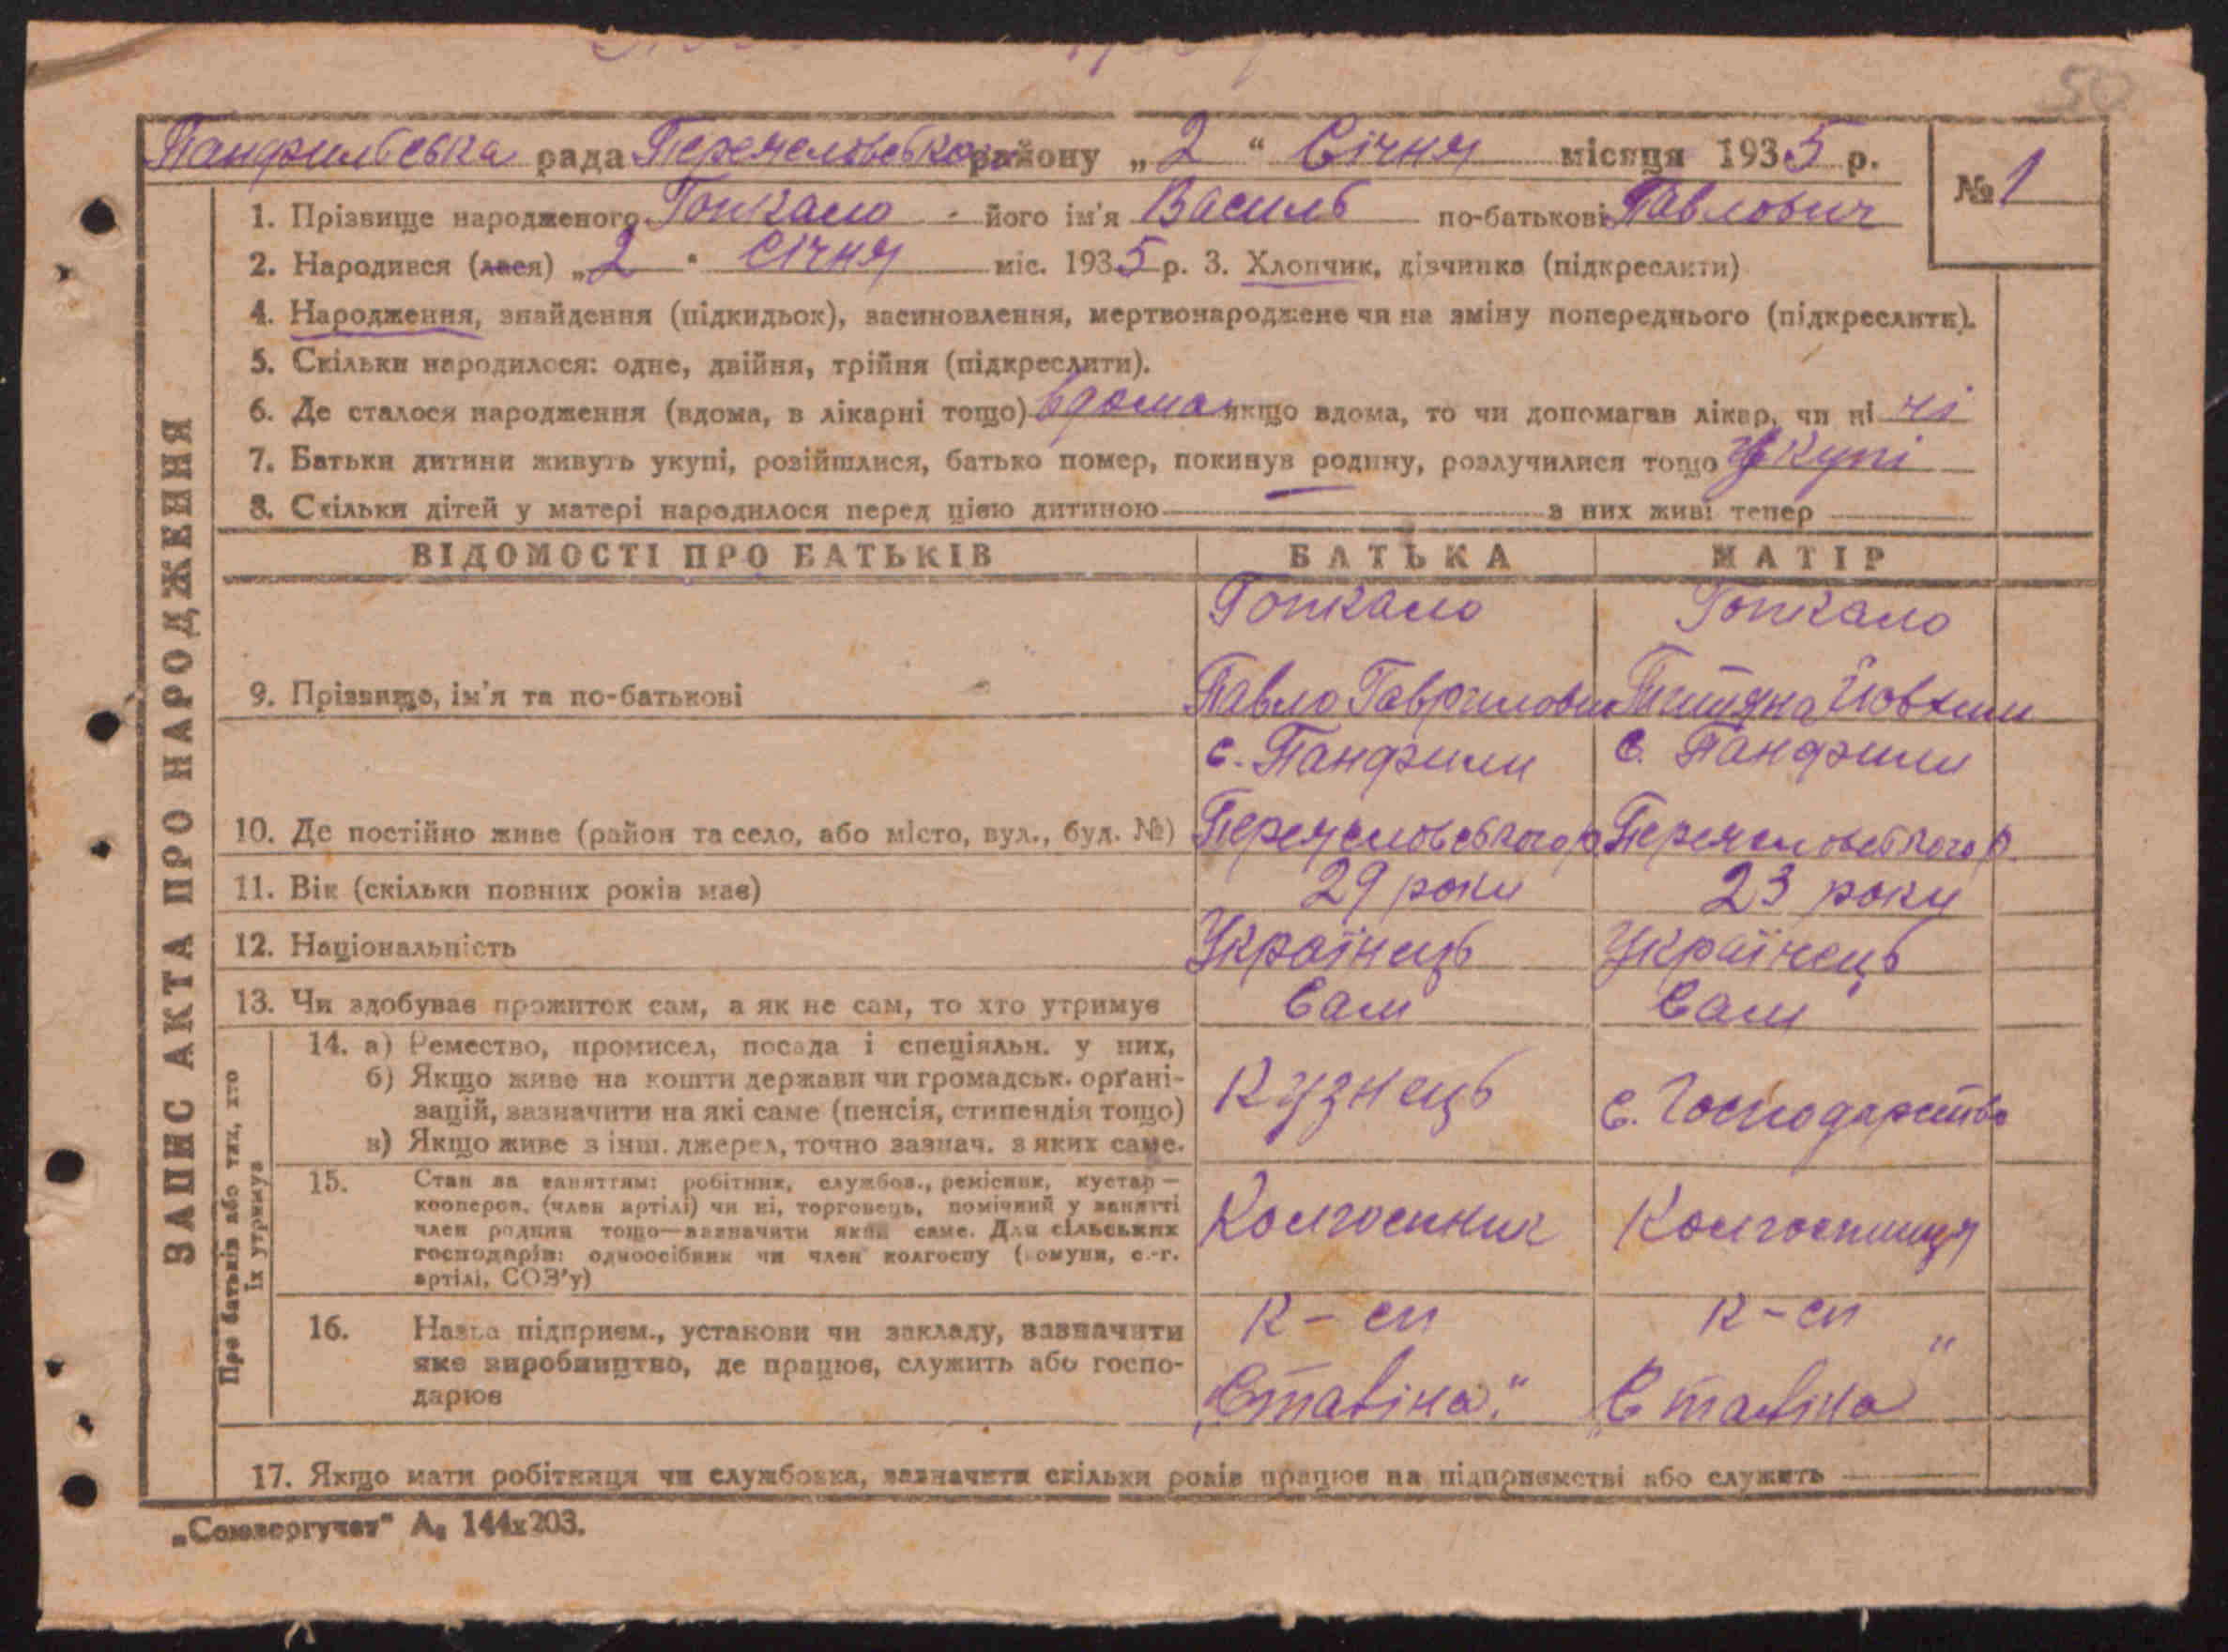 50
Панфильська рада Перемелевського району „2“ Січня місяця 1935 р.
№ 1
1. Прізвище народженого Гопкало його ім'я Василь по-батькові Павлович
2. Народився (лася) „2“ Січня міс. 1935 р. 3. Хлопчик, дівчинка (підкреслити)
4. Народження, знайдення (підкидьок), засиновлення, мертвонароджене чи на зміну попереднього (підкреслити).
5. Скільки народилося: одне, двійня, трійня (підкреслити).
6. Де сталося народження (вдома, в лікарні тощо) вдома якщо вдома, то чи допомагав лікар, чи ні ні
7. Батьки дитини живуть укупі, розійшлися, батько помер, покинув родину, розлучилися тощо Укупі
8. Скільки дітей у матері народилося перед цією дитиною — з них живі тепер
ЗАПИС АКТА ПРО НАРОДЖЕННЯ
ВІДОМОСТІ ПРО БАТЬКІВ БАТЬКА МАТІР
Гопкало Гопкало
9. Прізвище, ім'я та по-батькові Павло Гаврилович Титяна
с. Панфили с. Панфили
10. Де постійно живе (район та село, або місто, вул., буд. №)
11. Вік (скільки повних років має) 29 роки 23 роки
12. Національність Українець Українець
13. Чи здобуває прожиток сам, а як не сам, то хто утримує Сам Сам
Про батьків або тих, хто їх утримує
14. а) Ремество, промисел, посада і спеціяльн. у них,
б) Якщо живе на кошти держави чи громадськ. орґані-
зацій, зазначити на які саме (пенсія, стипендія тощо)
в) Якщо живе з інш. джерел, точно зазнач. з яких саме.
Кузнець с. Господарство
15. Стан за заняттям: робітник, службов., ремісник, кустар —
кооперов. (член артілі) чи ні, торговець, помічний у занятті
член родини тощо—зазначити який саме. Для сільських
господарів: одноосібник чи член колгоспу (комуни, с.-г.
артілі, СОЗ'у)
Колгоспник Колгоспниця
16. Назва підприєм., установи чи закладу, зазначити
яке виробництво, де працює, служить або госпо-
дарює
к-сп к-сп
„Сталіна“ „Сталіна“
17. Якщо мати робітниця чи службовка, зазначити скільки років працює на підприємстві або служить
„Союзоргучет“ А₅ 144х203.